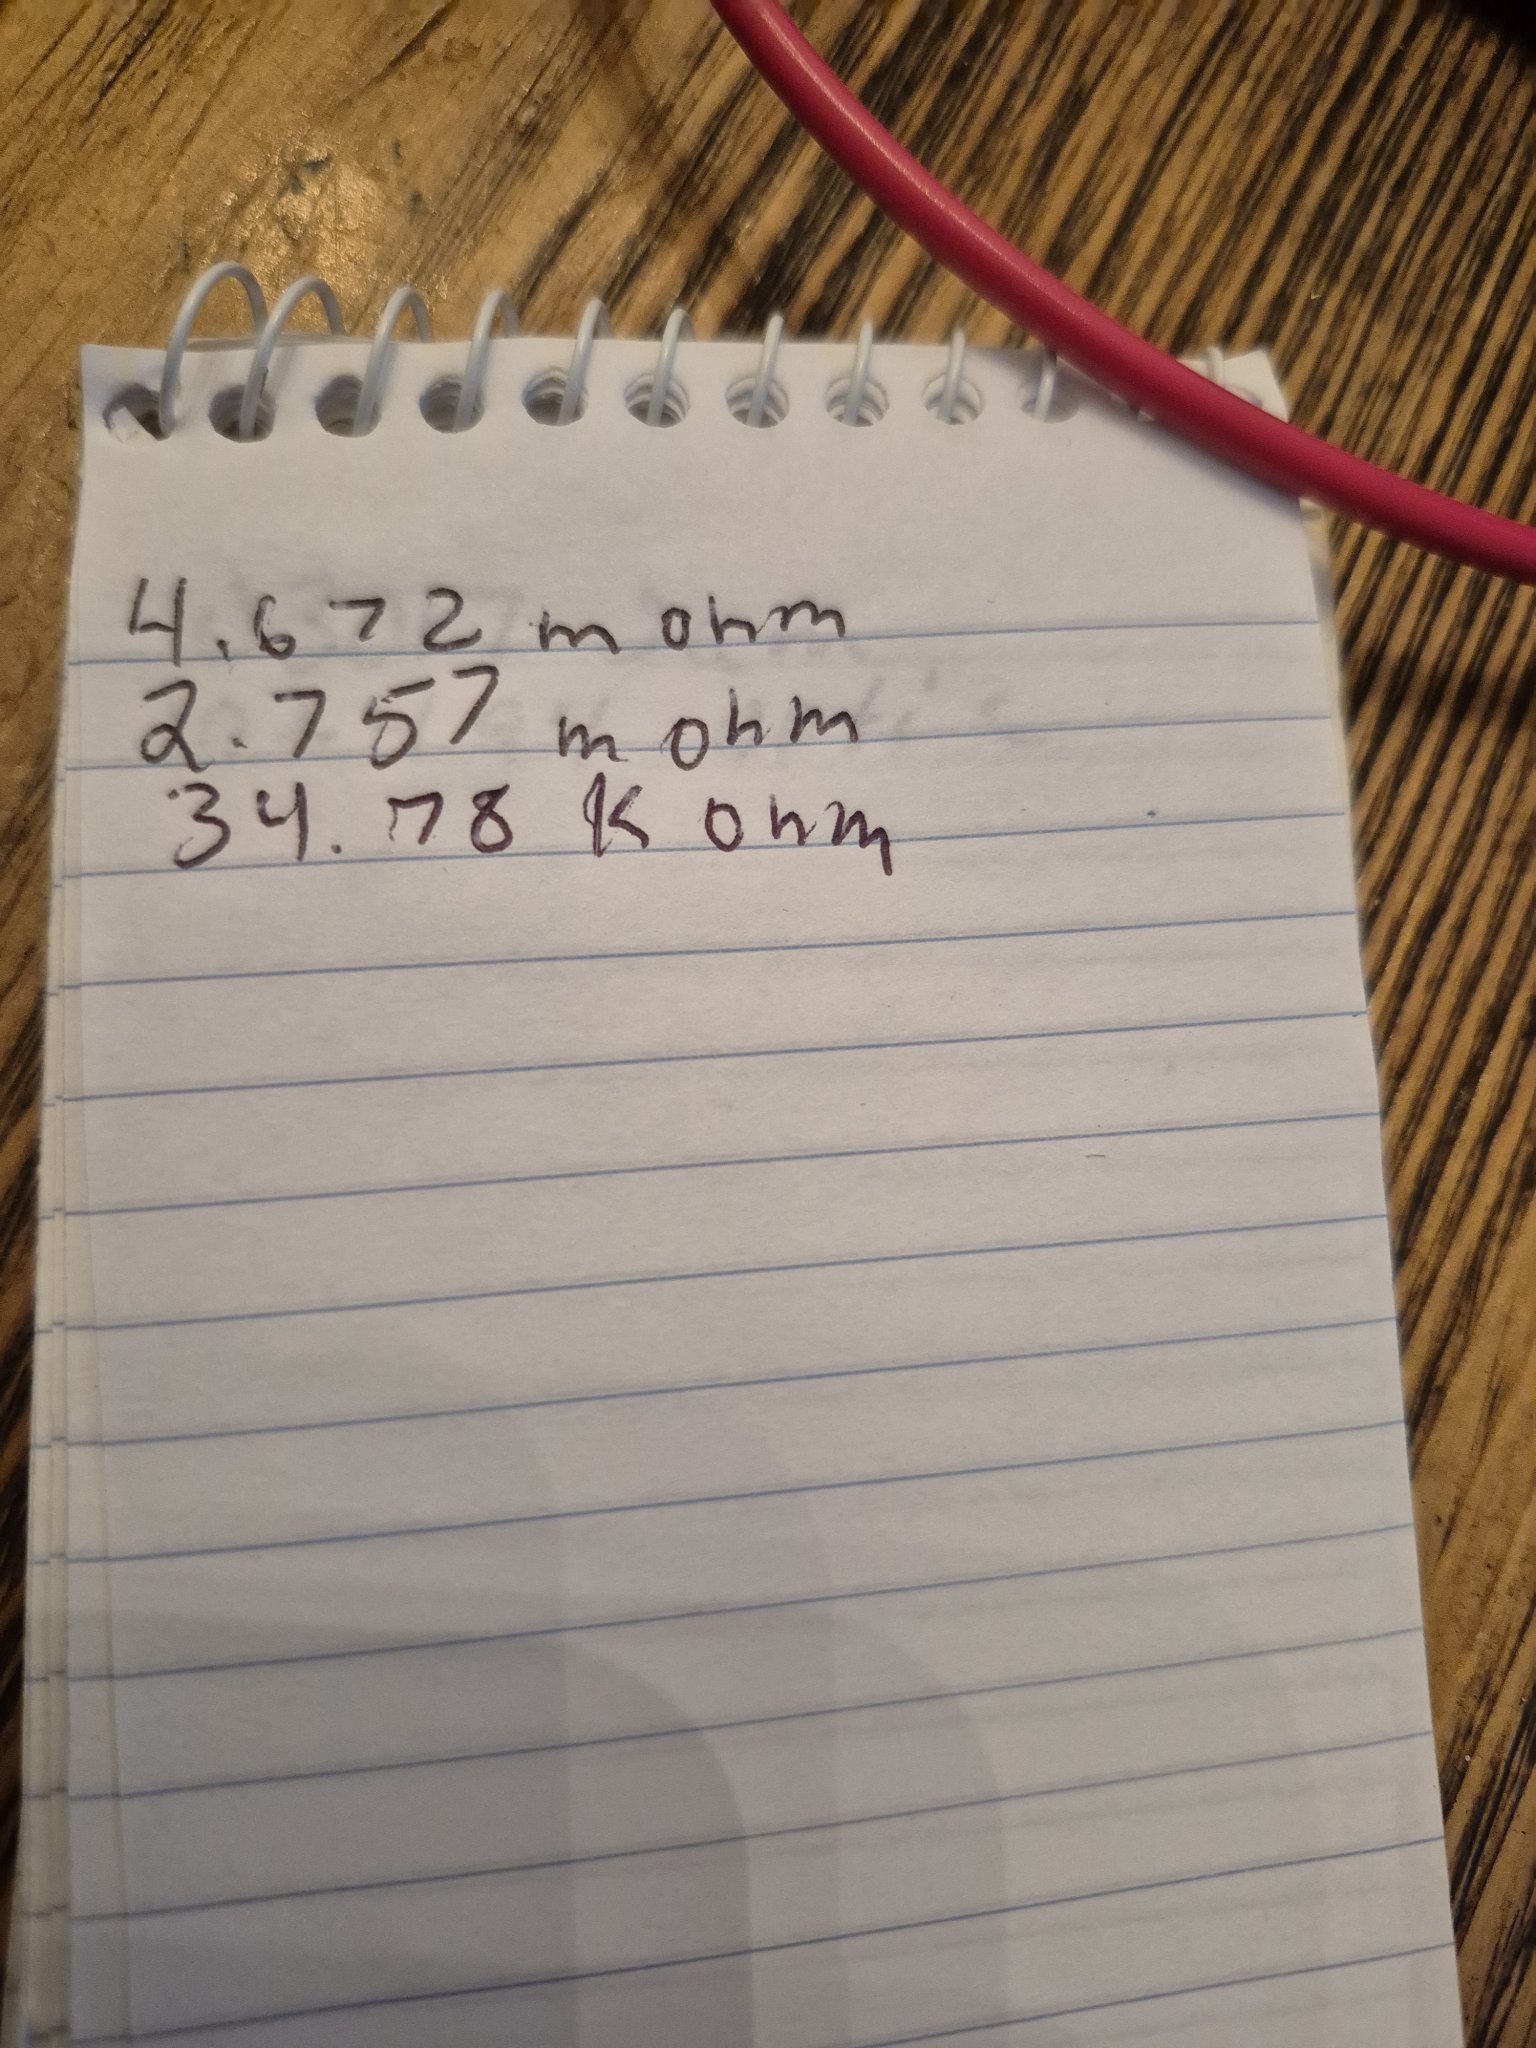 4.672 m ohm
2.757 m ohm
34.78 K ohm